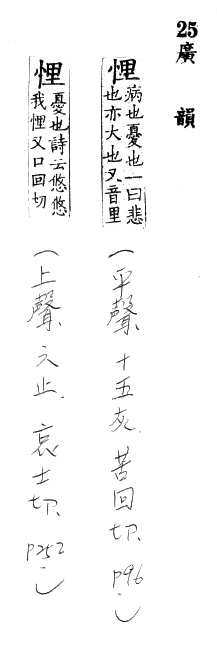 25廣韻
悝病也憂也一曰悲
也亦大也又音里
(平聲、十五灰、苦回切、P96.)
悝憂也詩云悠悠
我悝又口回切
(上聲、六止、哀士切、P252.)